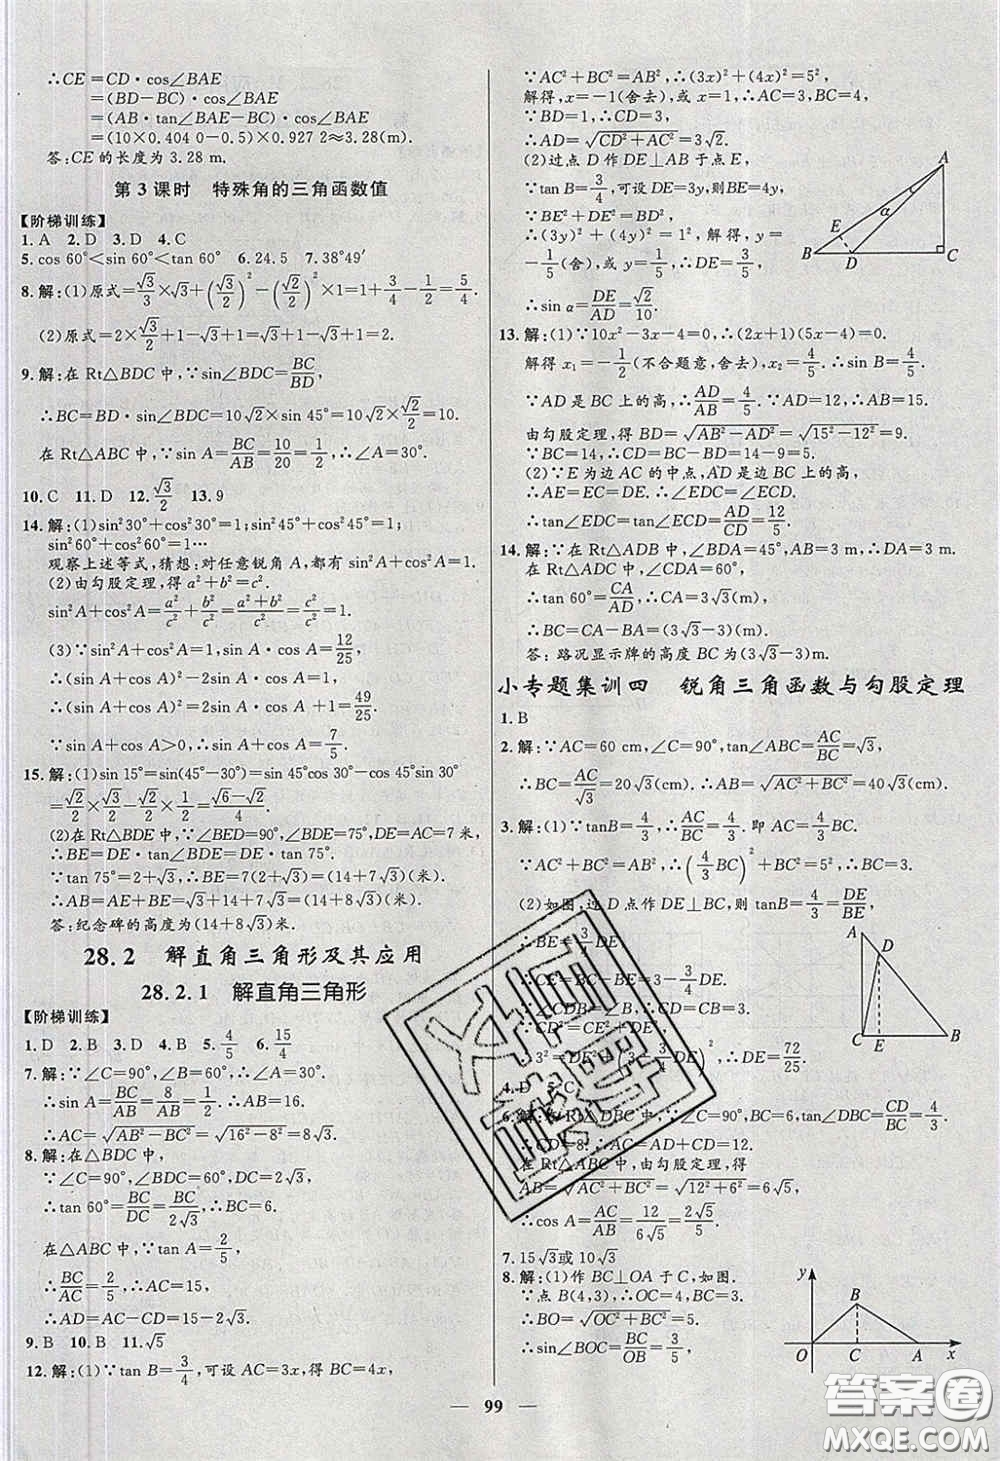 ∴CE=CD·cos∠BAE
=(BD-BC)·cos∠BAE
=(AB·tan∠BAE-BC)·cos∠BAE
=(10×0.404 0-0.5)×0.927 2≈3.28(m).
答:CE的长度为3.28 m.
第3课时 特殊角的三角函数值
【阶梯训练】
1.A 2.D 3.D 4.C
5.cos 60°<sin 60°<tan 60° 6.24.5 7.38°49′
8.解:(1)原式=√3/3×√3+(√3/2)²-(√2/2)²×1=1+3/4-1/2=5/4.
(2)原式=2×√3/2+1-√3+1=√3+1-√3+1=2.
9.解:在Rt△BDC中,∵sin∠BDC=BC/BD,
∴BC=BD·sin∠BDC=10√2×sin 45°=10√2×√2/2=10.
在Rt△ABC中,∵sin A=BC/AB=10/20=1/2,∴∠A=30°.
10.C 11.D 12.√3/2 13.9
14.解:(1)sin²30°+cos²30°=1;sin²45°+cos²45°=1;
sin²60°+cos²60°=1…
观察上述等式,猜想:对任意锐角A,都有sin²A+cos²A=1.
(2)由勾股定理,得a²+b²=c².
sin²A+cos²A=a²/c²+b²/c²=(a²+b²)/c²=c²/c²=1.
(3)∵sin²A+cos²A=1,sin A·cos A=12/25,
∴(sin A+cos A)²=1+2sin A·cos A=49/25.
∵sin A+cos A>0,∴sin A+cos A=7/5.
15.解:(1)sin 15°=sin(45°-30°)=sin45°cos30°-cos45°sin30°=
√2/2×√3/2-√2/2×1/2=(√6-√2)/4.
(2)在Rt△BDE中,∵∠BED=90°,∠BDE=75°,DE=AC=7米,
∴BE=DE·tan∠BDE=DE·tan 75°.
∵tan 75°=2+√3,∴BE=7(2+√3)=(14+7√3)(米).
∴AB=AE+BE=√3+14+7√3=(14+8√3)(米).
答:纪念碑的高度为(14+8√3)米.
28.2 解直角三角形及其应用
28.2.1 解直角三角形
【阶梯训练】
1.D 2.B 3.D 4.B 5.4/5 6.15/4
7.解:∵∠C=90°,∠B=60°,∴∠A=30°.
∴sin A=BC/AB=8/AB=1/2.∴AB=16.
∴AC=√(AB²-BC²)=√(16²-8²)=8√3.
8.解:在△BDC中,
∵∠C=90°,∠BDC=60°,DC=2√3,
∴tan 60°=BC/DC=BC/2√3.∴BC=6.
在△ABC中,∵tan A=2/5,
∴BC/AC=2/5.∴AC=15,
∴AD=AC-CD=15-2√3.
9.B 10.B 11.√5
12.解:(1)∵tan B=3/4,可设AC=3x,得BC=4x,
∵AC²+BC²=AB²,∴(3x)²+(4x)²=5²,
解得,x=-1(舍去),或x=1,∴AC=3,BC=4,
∵BD=1,∴CD=3,
∴AD=√(CD²+AC²)=3√2.
(2)过点D作DE⊥AB于点E,
∵tan B=3/4,可设DE=3y,则BE=4y,
∵BE²+DE²=BD²,
∴(3y)²+(4y)²=1²,解得,y=-
1/5(舍),或y=1/5,∴DE=3/5,
∴sin α=DE/AD=√2/10.
A
α
E
B
D
C
13.解:(1)∵10x²-3x-4=0,∴(2x+1)(5x-4)=0.
解得x₁=-1/2(不合题意,舍去),x₂=4/5.∴sin B=4/5.
∵AD是BC上的高,∴AD/AB=4/5.∵AB=15,∴AD=12.
由勾股定理,得BD=√(AB²-AD²)=√(15²-12²)=9.
∵BC=14,∴CD=BC-BD=14-9=5.
(2)∵E为边AC的中点,AD是边BC上的高,
∴AE=EC=DE.∴∠EDC=∠ECD.
∴tan∠EDC=tan∠ECD=AD/CD=12/5.
14.解:∵在Rt△ADB中,∠BDA=45°,AB=3 m,∴DA=3 m.
在Rt△ADC中,∠CDA=60°,
∴tan 60°=CA/AD.∴CA=3√3(m).
∴BC=CA-BA=(3√3-3)(m).
答:路况显示牌的高度BC为(3√3-3)m.
小专题集训四 锐角三角函数与勾股定理
1.B
2.解:∵AC=60 cm,∠C=90°,tan∠ABC=AC/BC=√3,
∴BC=AC/√3=20√3(cm).∴AB=√(AC²+BC²)=40√3(cm).
3.解:(1)∵tanB=4/3,∴AC/BC=4/3.即AC=4/3BC.
∵AC²+BC²=AB²,∴(4/3BC)²+BC²=5²,∴BC=3.
(2)如图,过D点作DE⊥BC,则tanB=4/3=DE/BE,
∴BE=3/4DE.
∴CE=3-3/4DE,
∵CD²=CE²+DE²,
∴3²=DE²+(3-3/4DE)²,∴DE=72/25.
A
D
C
E
B
4.D 5.C
6.解:在Rt△DBC中,∵∠C=90°,tan∠DBC=CD/BC=4/3,
CD=8.∴BC=6.∴AC=AD+CD=12.
在Rt△ABC中,由勾股定理,得
AB=√(AC²+BC²)=√(12²+6²)=6√5,
∴cos A=AC/AB=12/6√5=2√5/5.
7.15√3或10√3
8.解:(1)作BC⊥OA于C,如图.
∵点B(4,3),∴OC=4,BC=3.
∴BO=√(OC²+BC²)=5.
∴sin∠BOC=BC/OB=3/5.
y
B
O
C
A
x
99
答案圈
MXQE.COM